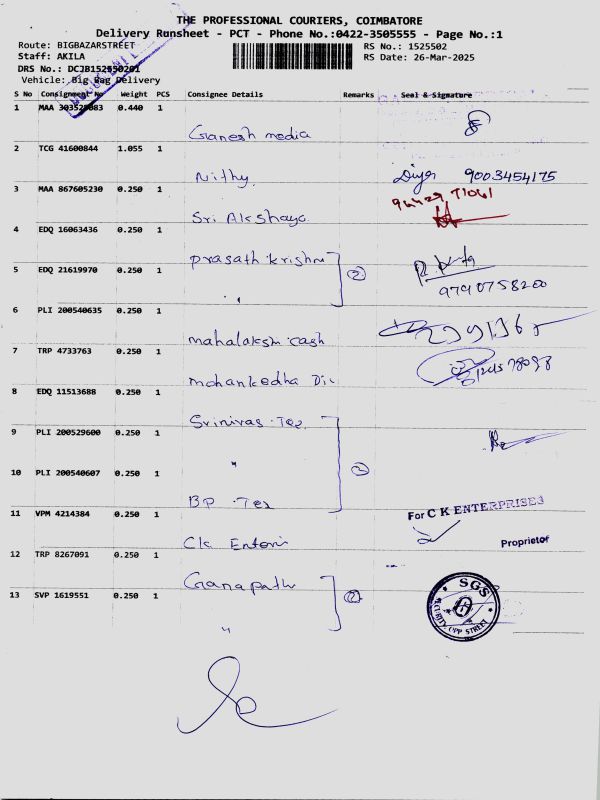 THE PROFESSIONAL COURIERS, COIMBATORE
Delivery Runsheet - PCT - Phone No.:0422-3505555 - Page No.:1
Route: BIGBAZARSTREET RS No.: 1525502
Staff: AKILA RS Date: 26-Mar-2025
DRS No.: DCJB152550201
Vehicle: Big Bag Delivery
S No Consignment No Weight PCS Consignee Details Remarks Seal & Signature
1 MAA 0.440 1
Ganesh media
2 TCG 41600844 1.055 1
Nithy 9003454175
3 MAA 867605230 0.250 1
Sri Akshaya
4 EDQ 16063436 0.250 1
prasath krishna
5 EDQ 21619970 0.250 1
" 2 9790758200
6 PLI 200540635 0.250 1
mahalaksh cash
7 TRP 4733763 0.250 1
8 EDQ 11513688 0.250 1
Srinivas Tex
9 PLI 200529600 0.250 1
"
10 PLI 200540607 0.250 1
BP Tex
11 VPM 4214384 0.250 1
For C K ENTERPRISES
Ck Enteri
Proprietor
12 TRP 8267091 0.250 1
Ganapathi
13 SVP 1619551 0.250 1
" 2
SGS
SECURITY, UPP STREET